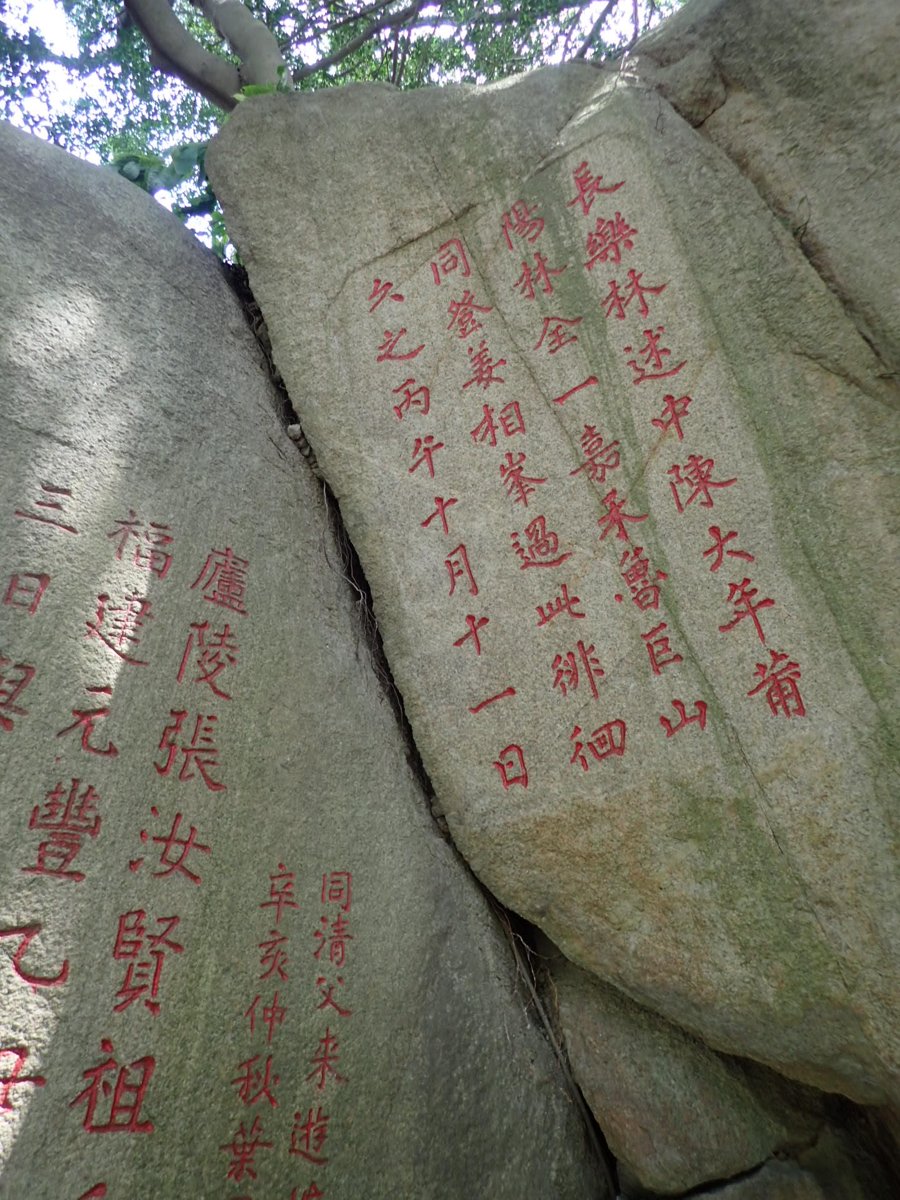 長樂林述中陳大年莆
陽林全一嘉禾魯巨山
同登姜相峯過此徘徊
久之丙午十月十一日
同清父來遊
辛亥仲秋葉
廬陵張汝賢祖
福建元豐乙丑
三日與